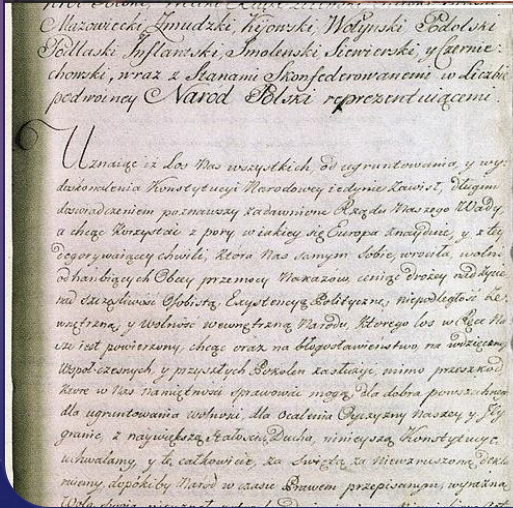 Mazowiecki Żmudzki, Kijowski, Wołynski Podolski
Podlaski Inflantski, Smolenski Siewierski, y Czernie-
chowski, wraz z Stanami Skonfederowanemi w Liczbie
podwoiney Naród Polski reprezentuiącemi.
Uznaiąc iż Los Nas wszystkich, od ugruntowania y wy-
doskonalenia Konstytucyi Narodowey iedynie zawisł, długim
doświadczeniem poznawszy zadawnione Rządu Naszego Wady,
a chcąc korzystać z pory, w iakiey się Europa znayduie, y z tey
dogorywaiącey chwili, która Nas samym Sobie wrociła, wolni
od hańbiących Obcey przemocy Nakazów, ceniąc drożey nad życie
nad szczęśliwość Osobistą, Exystencyą Polityczną, niepodległość Ze-
wnętrzną, y wolność wewnętrzną Narodu, którego los w Ręce Na-
sze iest powierzony, chcąc oraz na błogosławieństwo, na wdzięczność
Współczesnych y przyszłych Pokoleń zasłużyć, mimo przeszkód
które w Nas namiętności sprawować mogą, dla dobra powszechnego
dla ugruntowania wolności, dla ocalenia Oyczyzny Naszey y Jey
granic, z naywiększą stałością Ducha, ninieyszą Konstytucyę
uchwalamy, y tę całkowicie za Świętą za niewzruszoną dekla-
ruiemy, dopókiby Naród w czasie Prawem przepisanym, wyraźną
Wolą